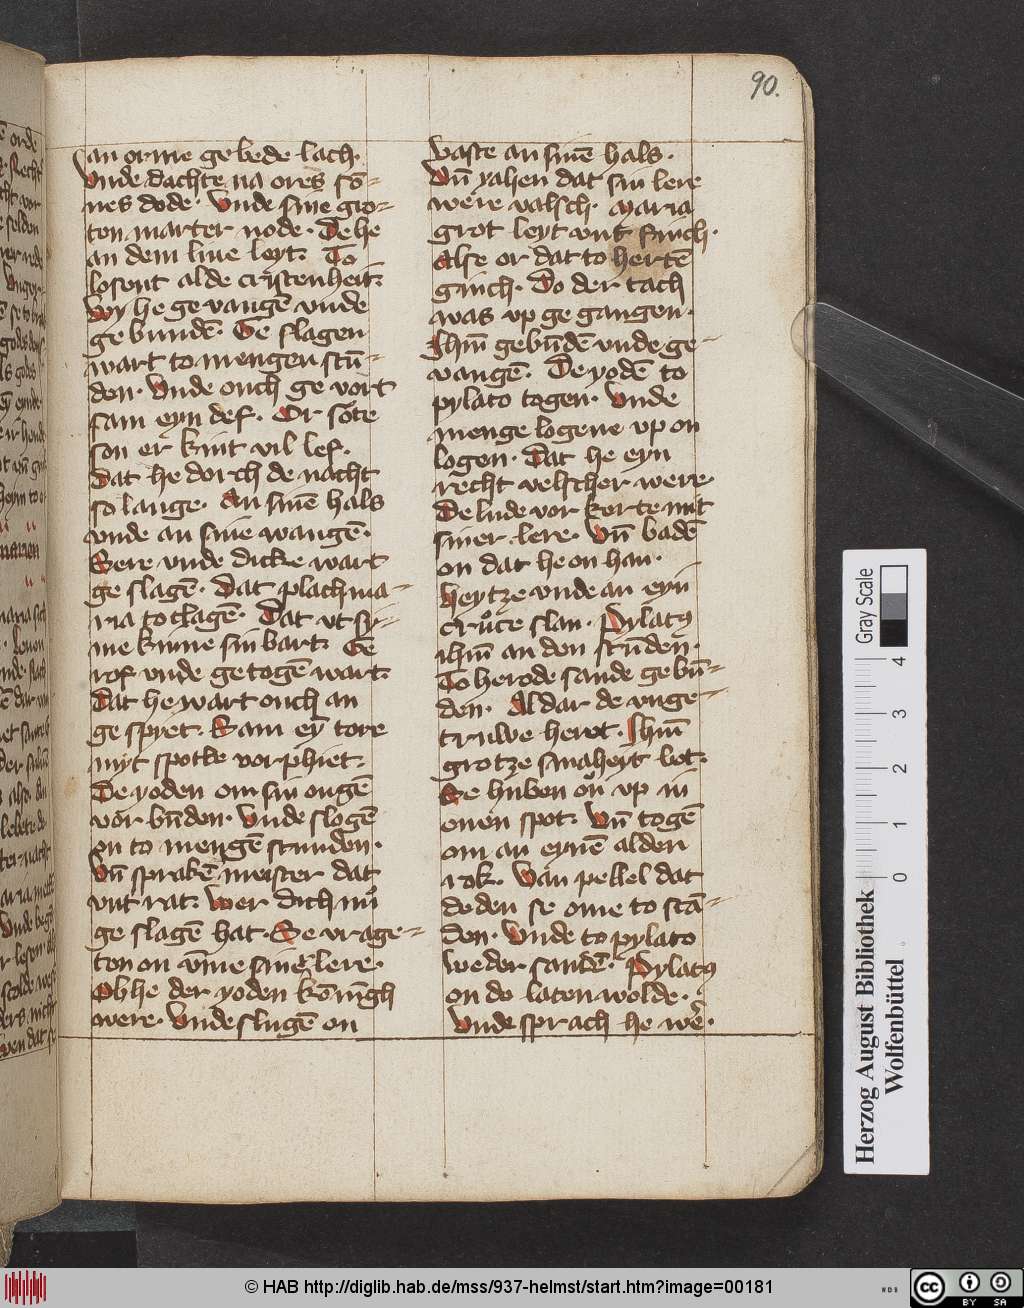 90.
an orme gebede lach.
Unde dachte na ores sō-
nes dode. Unde sine gro-
ton marter node. De he
an dem liue leyt. To
losent alde cristenheit.
Wy he ge vangē unde
ge bundē. Ge slagen
wart to mengen stū-
den. Unde ouch ge vort
sam eyn def. Or sōte
son er kint vil lef.
Dat he dorch de nacht
so lange. An sinē hals
unde an sine wangē.
Sere unde dicke wart
ge slagē. Dat plach ma-
ria to clagē. Dat ut si-
me kinne sin bart. Ge
rof unde ge togē wart.
Dat he wart ouch an
ge spyet. Sam eȳ tore
myt spotte vorphiet.
De yoden om sin ougē
vor būden. Unde slogē
on to mengē stunden.
Uñ sprakē meister dat
unt rat. Wer dich nů
ge slagē hat. Se vrage-
ton on ūme siner lere.
Ob he der yoden kōnīgh
were. Unde slugē on
vaste an sinē hals.
Uñ yahen dat sin lere
were valsch. Maria
grot leyt unt finch.
Alse or dat to hertē
ginch. Do der tach
was up ge gangen.
Ihm̄ gebūdē unde ge-
vangē. De yodē to
pylato togen. Unde
menge logene up on
logen. Dat he eyn
recht velscher were.
De lude vor kerte mit
siner lere. Uñ badē
on dat he on han.
heytze unde an eyn
crůce slan. Pylatꝰ
ihm̄ an den stūden.
To herode sande gebū-
den. Al dar de unge-
truwe herot. Ihm̄
grotze smaheyt bot.
Se huben on up in
onen spot. Uñ togē
om an eynē alden
rok. Van pellel dat
deden se ome to scā-
den. Unde to pylato
weder sandē. Pylatꝰ
on do laten wolde.
Unde sprach he wē.
Gray Scale
0 1 2 3 4
Herzog August Bibliothek
Wolfenbüttel
© HAB http://diglib.hab.de/mss/937-helmst/start.htm?image=00181
WDB
cc BY SA